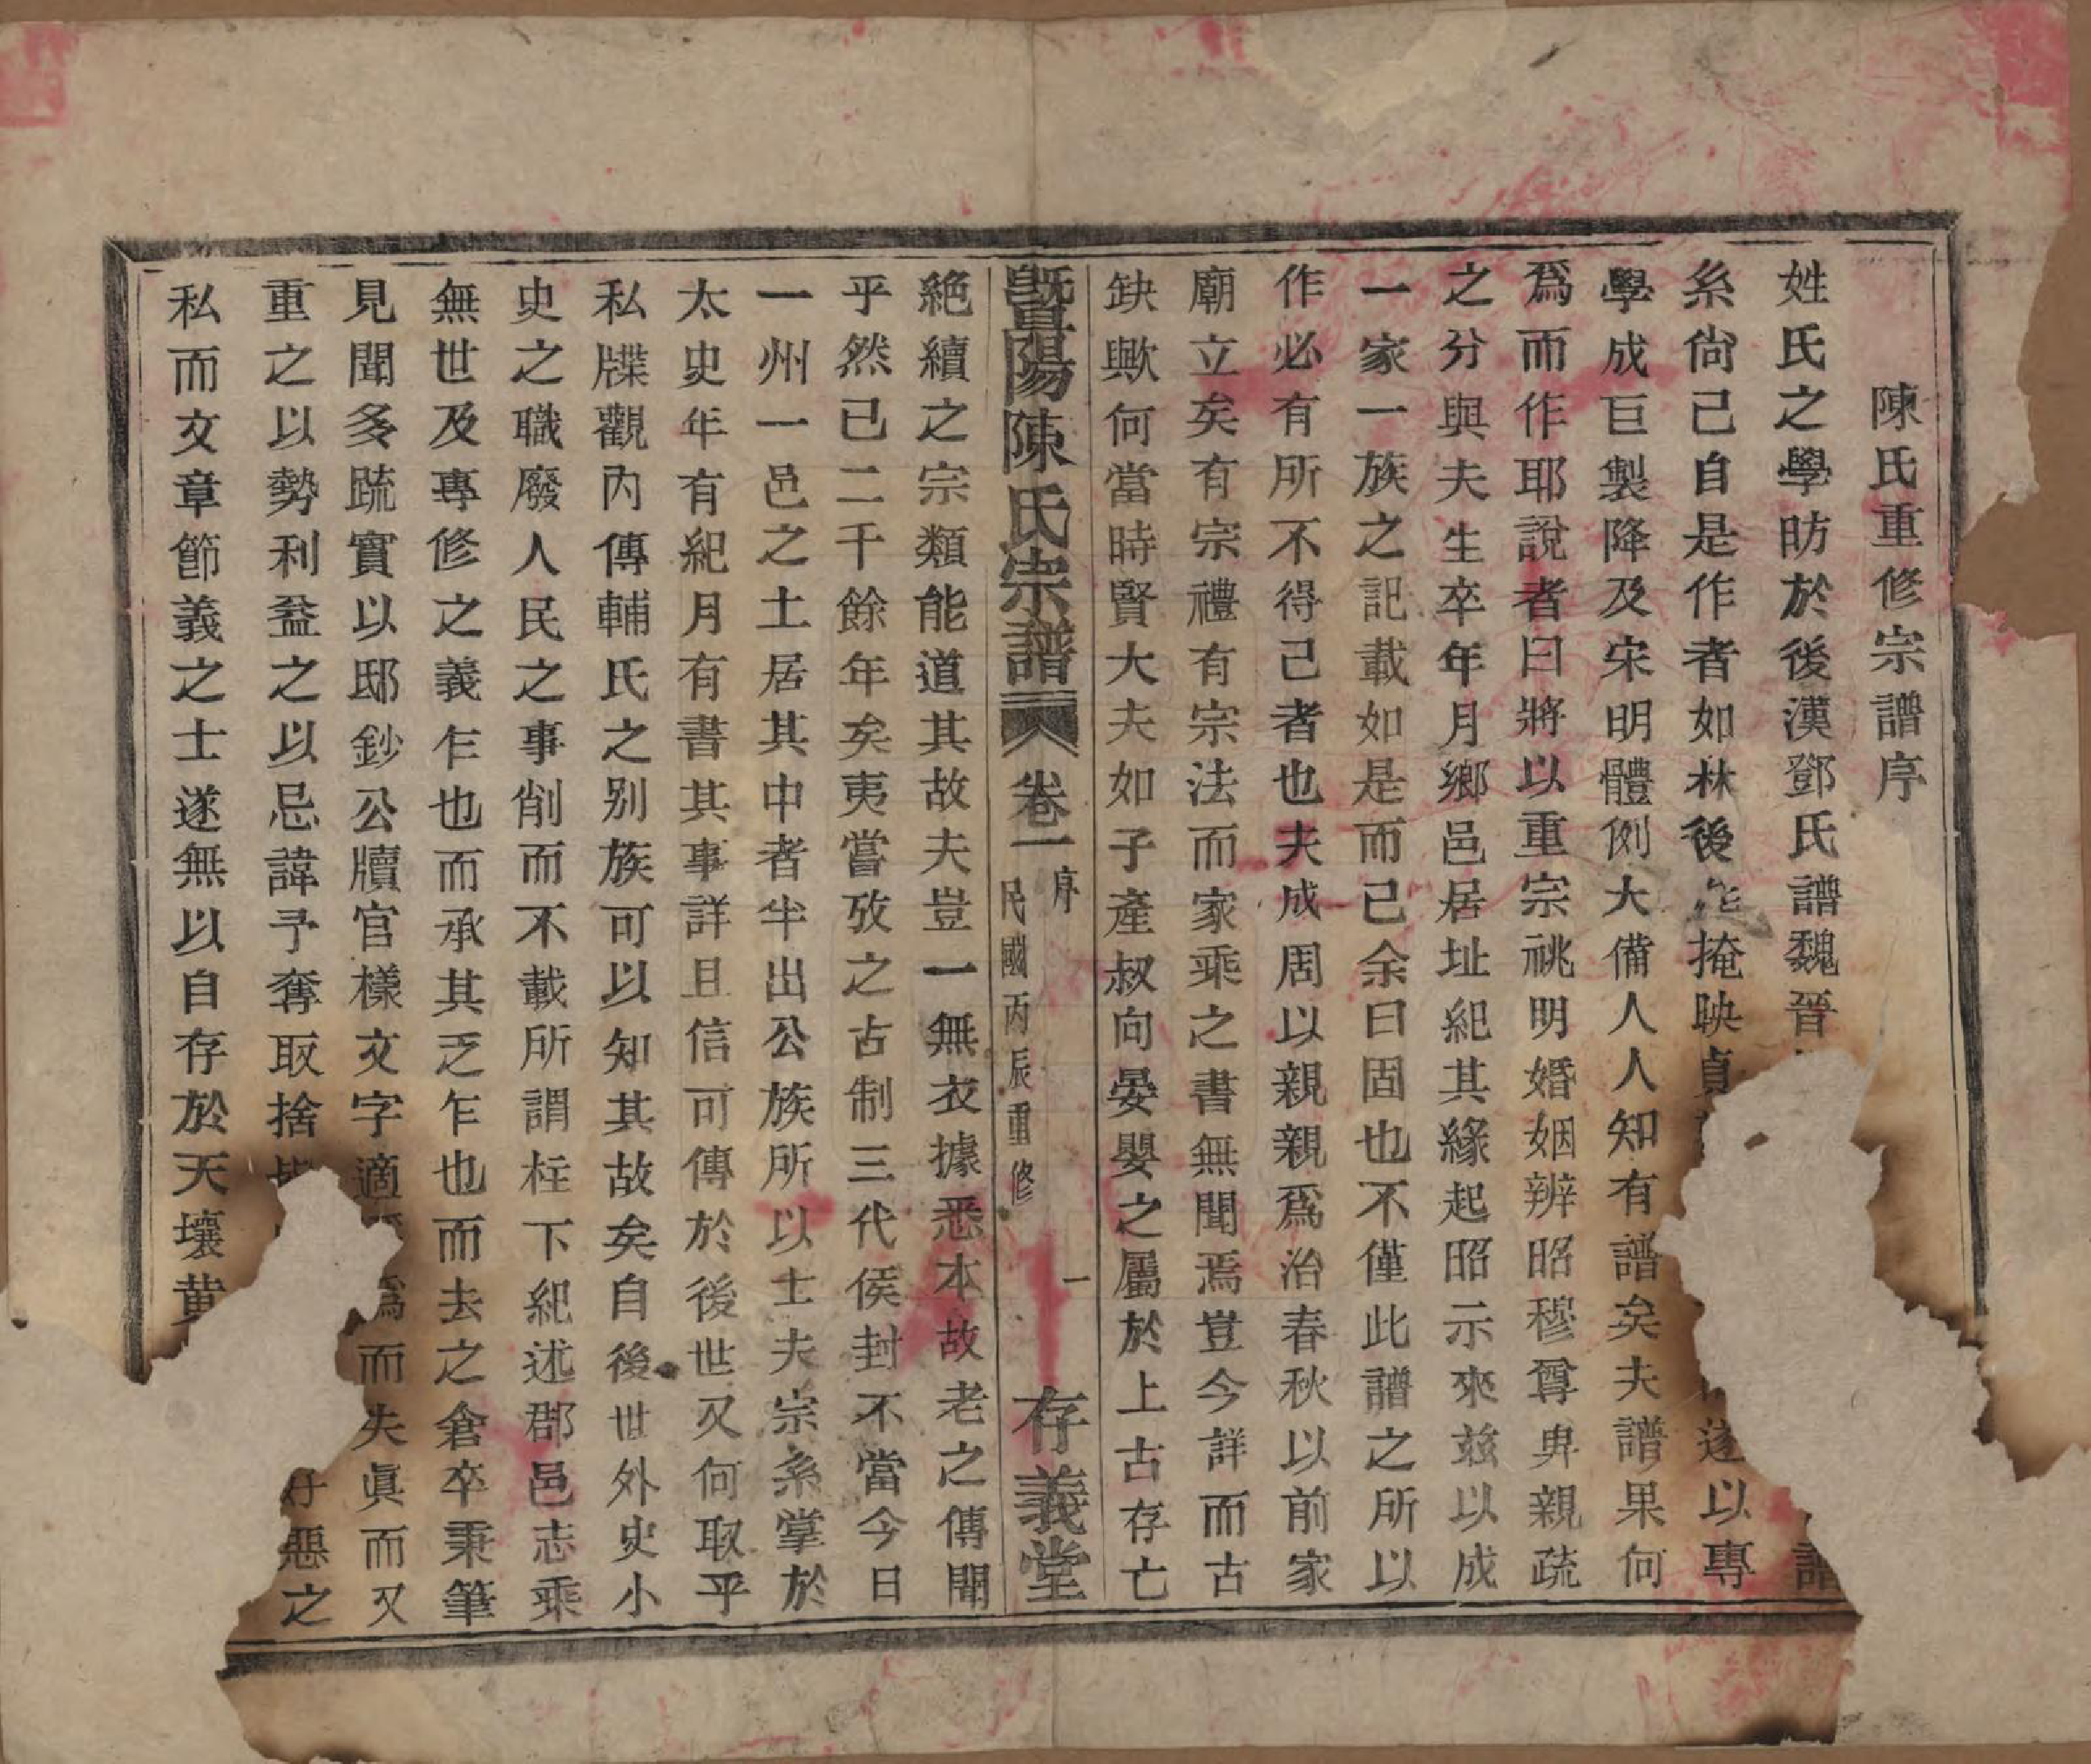 陳氏重修宗譜序
姓氏之學昉於後漢鄧氏譜魏晉 譜
系尙己自是作者如林後 掩映貞 遂以專
學成巨製降及宋明體例大備人人知有譜矣夫譜果何
爲而作耶說者曰將以重宗祧明婚姻辨昭穆尊卑親疏
之分與夫生卒年月鄉邑居址紀其緣起昭示來茲以成
一家一族之記載如是而已余曰固也不僅此譜之所以
作必有所不得已者也夫成周以親親爲治春秋以前家
廟立矣有宗禮有宗法而家乘之書無聞焉豈今詳而古
缺歟何當時賢大夫如子產叔向晏嬰之屬於上古存亡
暨陽陳氏宗譜 卷一 序 民國丙辰重修 一 存義堂
絶續之宗類能道其故夫豈一無衣據悉本故老之傳聞
乎然已二千餘年矣夷嘗攷之古制三代侯封不當今日
一州一邑之土居其中者半出公族所以士夫宗系掌於
太史年有紀月有書其事詳且信可傳於後世又何取乎
私牒觀內傳輔氏之别族可以知其故矣自後世外史小
史之職廢人民之事削而不載所謂柱下紀述郡邑志乘
無世及專修之義乍也而承其乏乍也而去之倉卒秉筆
見聞多疏實以邸鈔公牘官樣文字適 爲而失眞而又
重之以勢利益之以忌諱予奪取捨 好惡之
私而文章節義之士遂無以自存於天壤黃